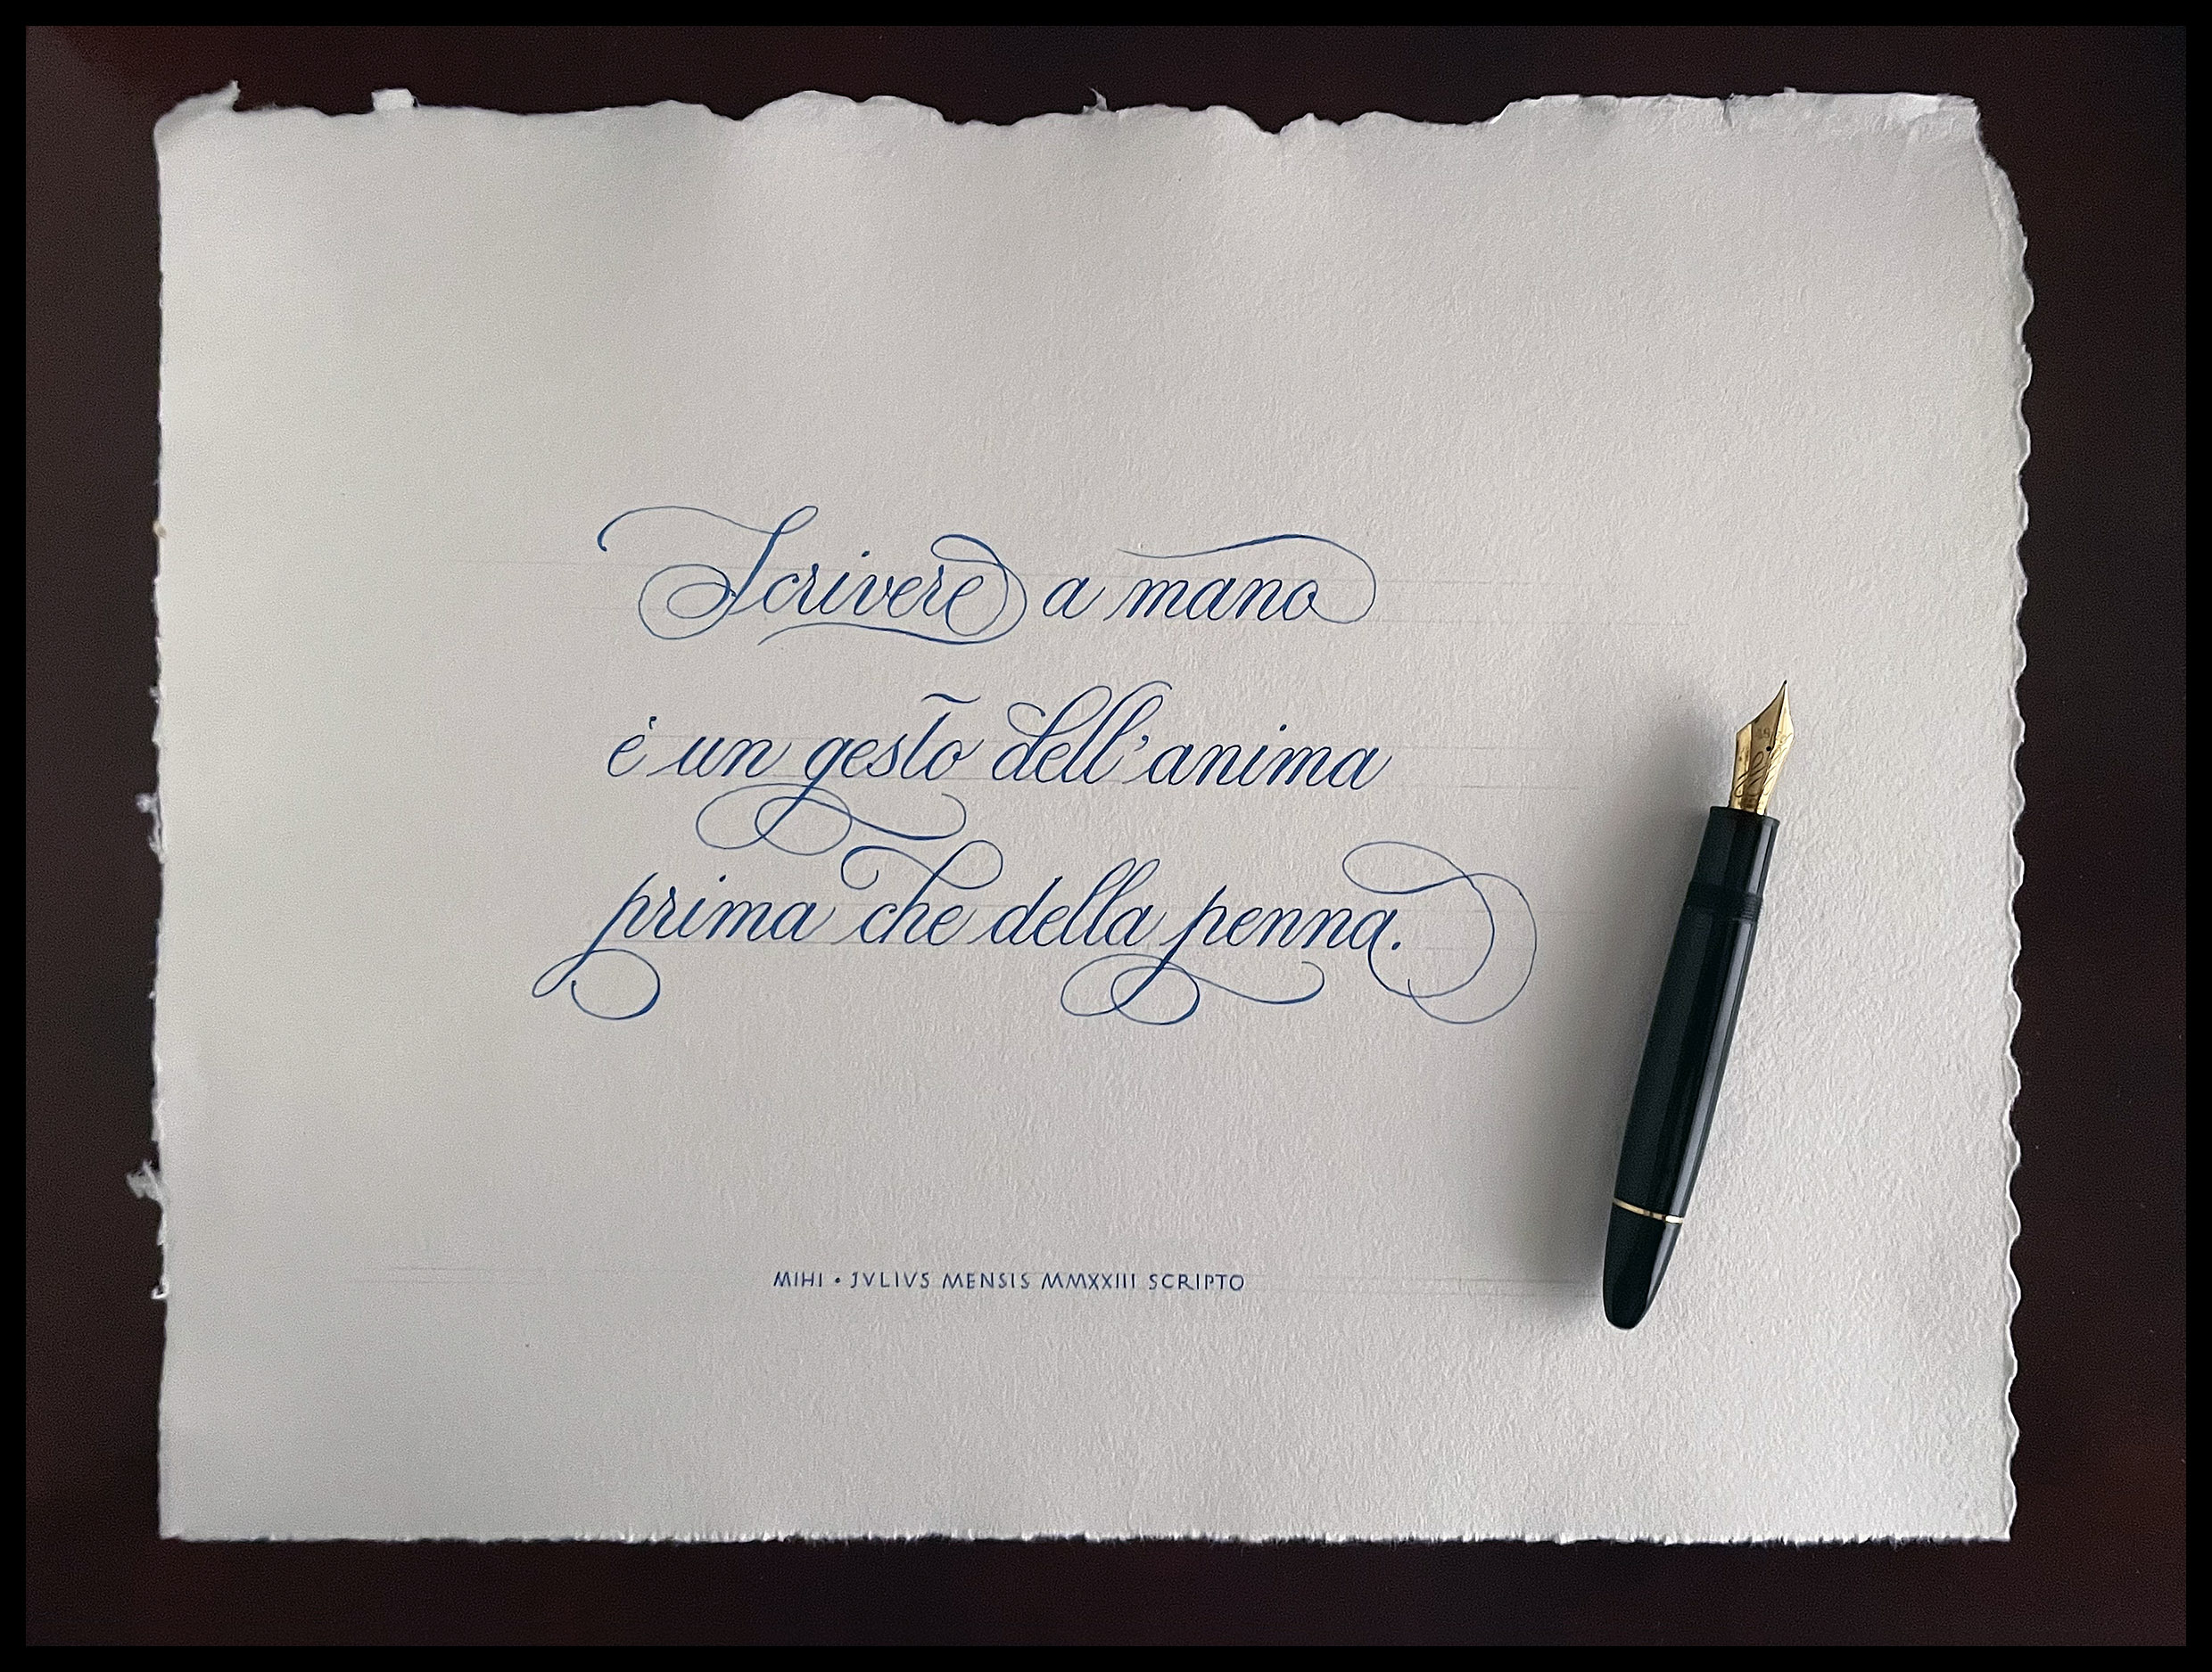 Scrivere a mano
è un gesto dell'anima
prima che della penna.
MIHI • JVLIVS MENSIS MMXXIII SCRIPTO